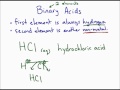 2 elements
Binary Acids
• first element is always hydrogen
• second element is another non-metal
HCl (aq) hydrochloric acid
H Cl
HCl